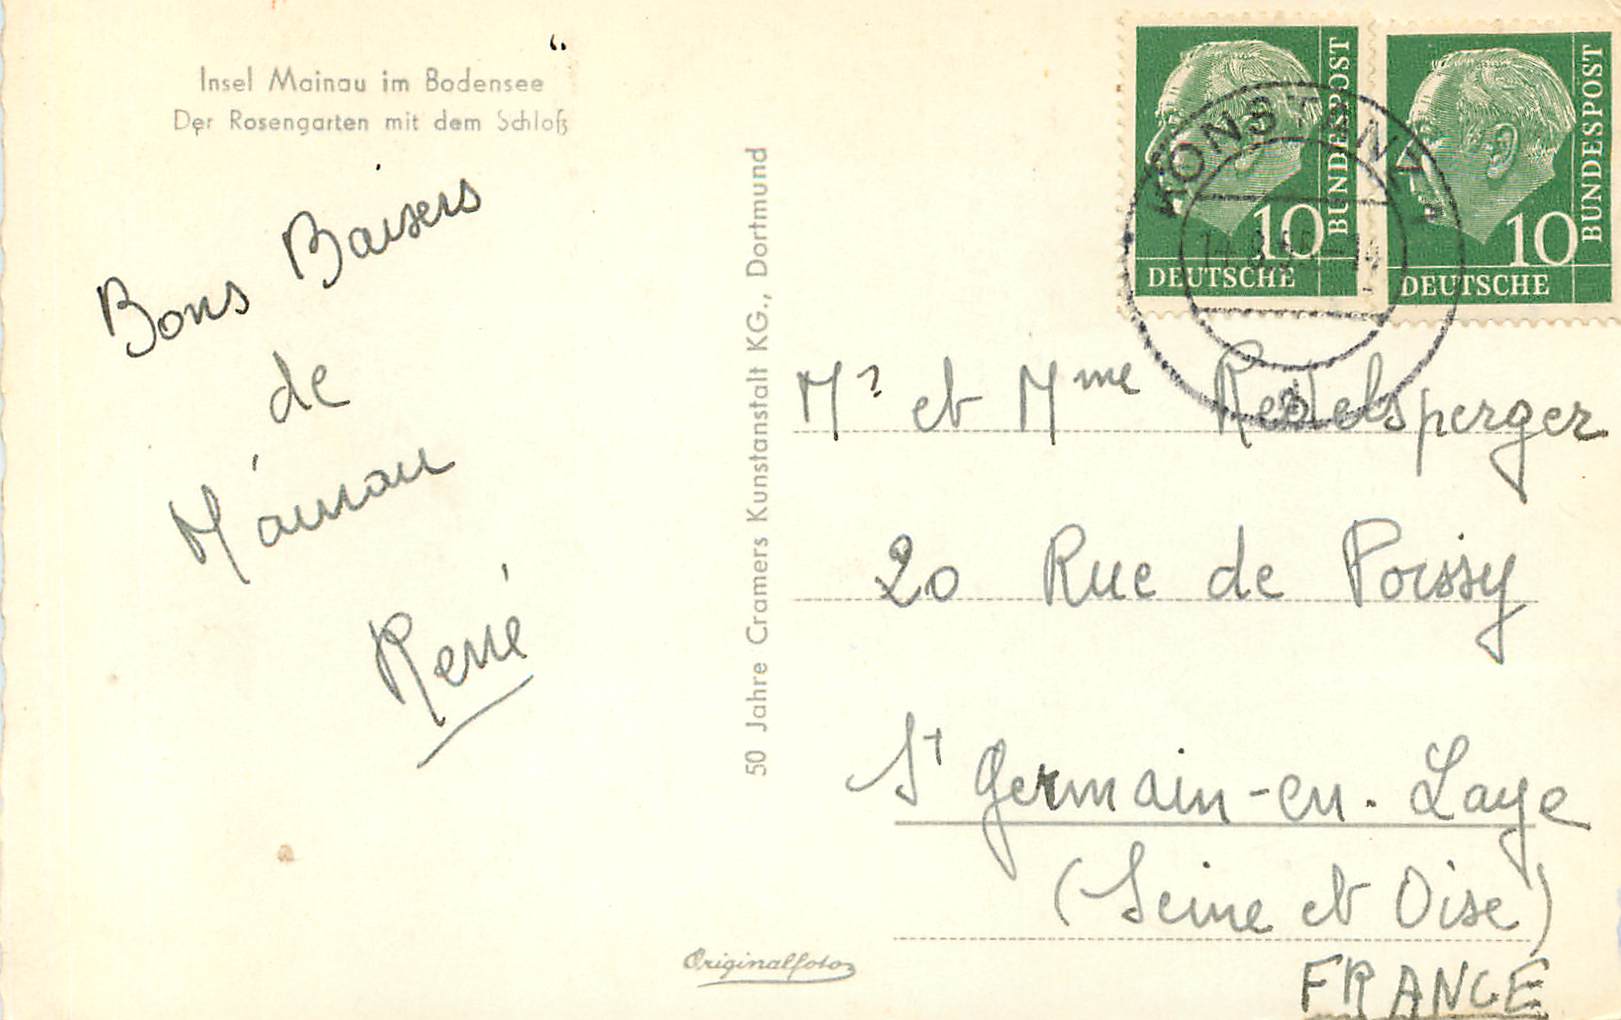 Insel Mainau im Bodensee
Der Rosengarten mit dem Schloß
Bons Baisers
de
Mainau
René
50 Jahre Cramers Kunstanstalt KG., Dortmund
Originalfoto
DEUTSCHE
BUNDESPOST
10
DEUTSCHE
BUNDESPOST
10
KONSTANZ
Mr et Mme
20 Rue de Poissy
St Germain-en-Laye
(Seine et Oise)
FRANCE